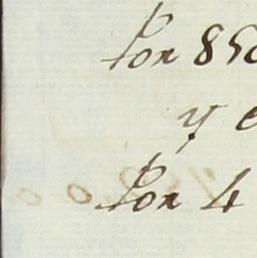 Por 850
y e
Por 4